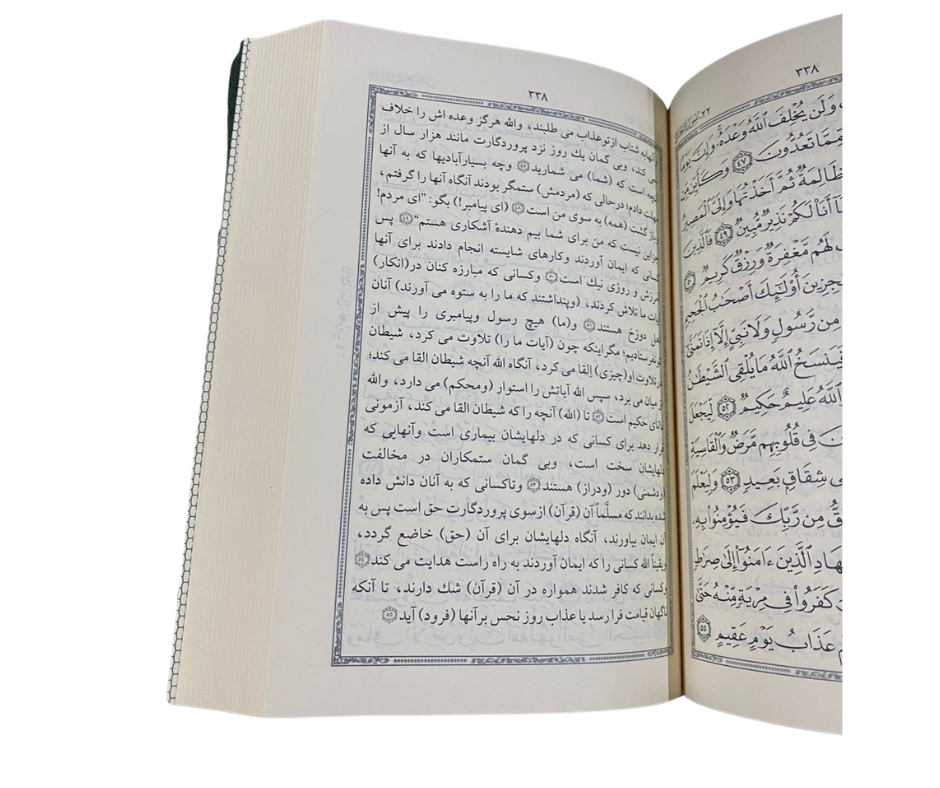 ۳۳۸
وآنها به شتاب از تو عذاب می طلبند، والله هرگز وعده اش را خلاف
نمی کند، وبی گمان یك روز نزد پروردگارت مانند هزار سال از
آنچه است که (شما) می شمارید ۴۷ وچه بسیارآبادیها که به آنها
مهلت دادم؛ درحالی که (مردمش) ستمگر بودند آنگاه آنها را گرفتم،
وباز گشت (همه) به سوی من است ۴۸ (ای پیامبر!) بگو: "ای مردم!
جزاین نیست که من برای شما بیم دهندهٔ آشکاری هستم" ۴۹ پس
کسانی که ایمان آوردند وکارهای شایسته انجام دادند برای آنها
آمرزش و روزی نیك است ۵۰ وکسانی که مبارزه کنان در(انکار)
آیات ما تلاش کردند، (وپنداشتند که ما را به ستوه می آورند) آنان
اهل دوزخ هستند ۵۱ و(ما) هیچ رسول وپیامبری را پیش از
تو نفرستادیم؛ مگراینکه چون (آیات ما را) تلاوت می کرد، شیطان
در تلاوت او(چیزی) القا می کرد، آنگاه الله آنچه شیطان القا می کند؛
از میان می برد، سپس الله آیاتش را استوار (ومحکم) می دارد، والله
دانای حکیم است ۵۲ تا (الله) آنچه را که شیطان القا می کند، آزمونی
قرار دهد برای کسانی که در دلهایشان بیماری است وآنهایی که
دلهایشان سخت است، وبی گمان ستمکاران در مخالفت
(ودشمنی) دور (ودراز) هستند ۵۳ وتاکسانی که به آنان دانش داده
شده بدانند که مسلّماً آن (قرآن) ازسوی پروردگارت حق است پس به
آن ایمان بیاورند، آنگاه دلهایشان برای آن (حق) خاضع گردد،
ویقیناً الله کسانی را که ایمان آوردند به راه راست هدایت می کند ۵۴
وکسانی که کافر شدند همواره در آن (قرآن) شك دارند، تا آنکه
ناگهان قیامت فرا رسد یا عذاب روز نحس برآنها (فرود) آید ۵۵
۳۳۸
وَلَن يُخْلِفَ ٱللَّهُ وَعْدَهُۥ وَإِنَّ يَوْمًا
مِّمَّا تَعُدُّونَ ٤٧ وَكَأَيِّن مِّن
ظَالِمَةٌ ثُمَّ أَخَذْتُهَا وَإِلَىَّ ٱلْمَصِيرُ
أَنَا۠ لَكُمْ نَذِيرٌ مُّبِينٌ ٤٩ فَٱلَّذِينَ
لَهُم مَّغْفِرَةٌ وَرِزْقٌ كَرِيمٌ ٥٠
أُو۟لَٰٓئِكَ أَصْحَٰبُ ٱلْجَحِيمِ
مِن رَّسُولٍ وَلَا نَبِىٍّ إِلَّآ إِذَا تَمَنَّىٰٓ
فَيَنسَخُ ٱللَّهُ مَا يُلْقِى ٱلشَّيْطَٰنُ
ٱللَّهُ عَلِيمٌ حَكِيمٌ ٥٢ لِّيَجْعَلَ
فِى قُلُوبِهِم مَّرَضٌ وَٱلْقَاسِيَةِ
شِقَاقٍۭ بَعِيدٍ ٥٣ وَلِيَعْلَمَ
مِن رَّبِّكَ فَيُؤْمِنُوا۟ بِهِۦ
ٱلَّذِينَ ءَامَنُوٓا۟ إِلَىٰ صِرَٰطٍ
كَفَرُوا۟ فِى مِرْيَةٍ مِّنْهُ حَتَّىٰ
عَذَابُ يَوْمٍ عَقِيمٍ ٥٥